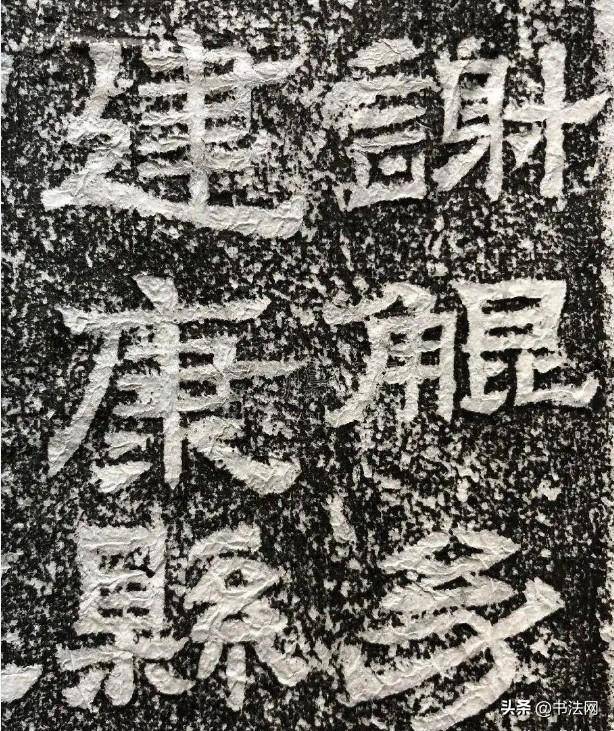 謝鯤幼
建康縣
头条 @书法网